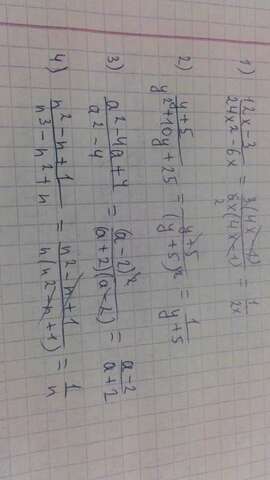 1) 12x-3/24x²-6x = 3(4x-1)/6x(4x-1) 2 = 1/2x
2) y+5/y²+10y+25 = y+5/(y+5)² = 1/y+5
3) a²-4a+4/a²-4 = (a-2)²/(a+2)(a-2) = a-2/a+2
4) n²-n+1/n³-n²+n = n²-n+1/n(n²-n+1) = 1/n